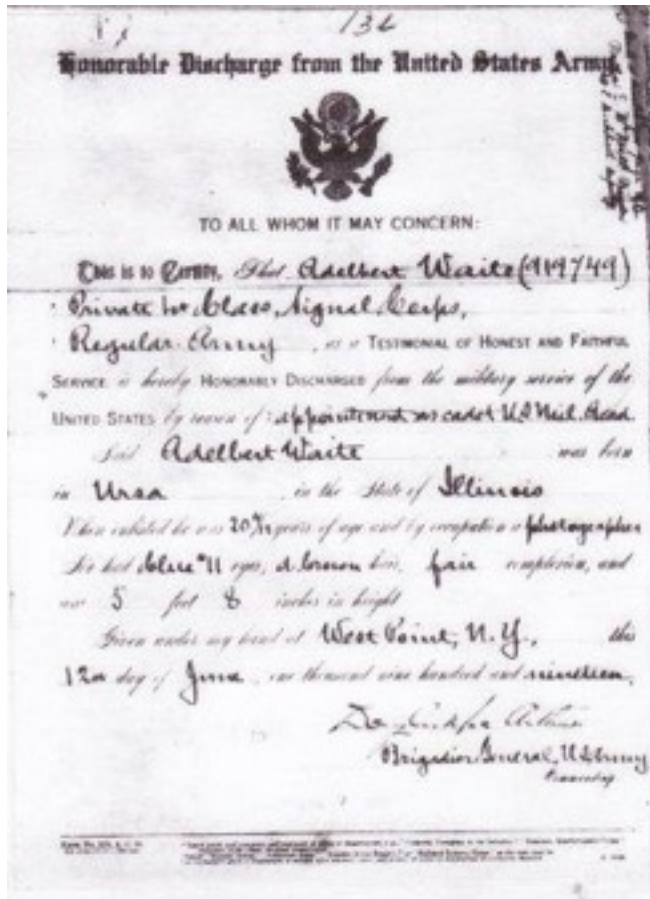 132
Honorable Discharge from the United States Army
TO ALL WHOM IT MAY CONCERN:
This is to Certify, That Adelbert Waite (919749)
Private 1st Class, Signal Corps,
Regular Army, as a TESTIMONIAL OF HONEST AND FAITHFUL
SERVICE is hereby HONORABLY DISCHARGED from the military service of the
UNITED STATES by reason of appointment as cadet U.S. Mil. Acad.
Said Adelbert Waite was born
in Ursa in the State of Illinois
When enlisted he was 20 years of age and by occupation a photographer
He had blue eyes, d. brown hair, fair complexion, and
was 5 feet 8 inches in height
Given under my hand at West Point, N.Y., this
12th day of June, one thousand nine hundred and nineteen.
Brigadier General, U.S. Army